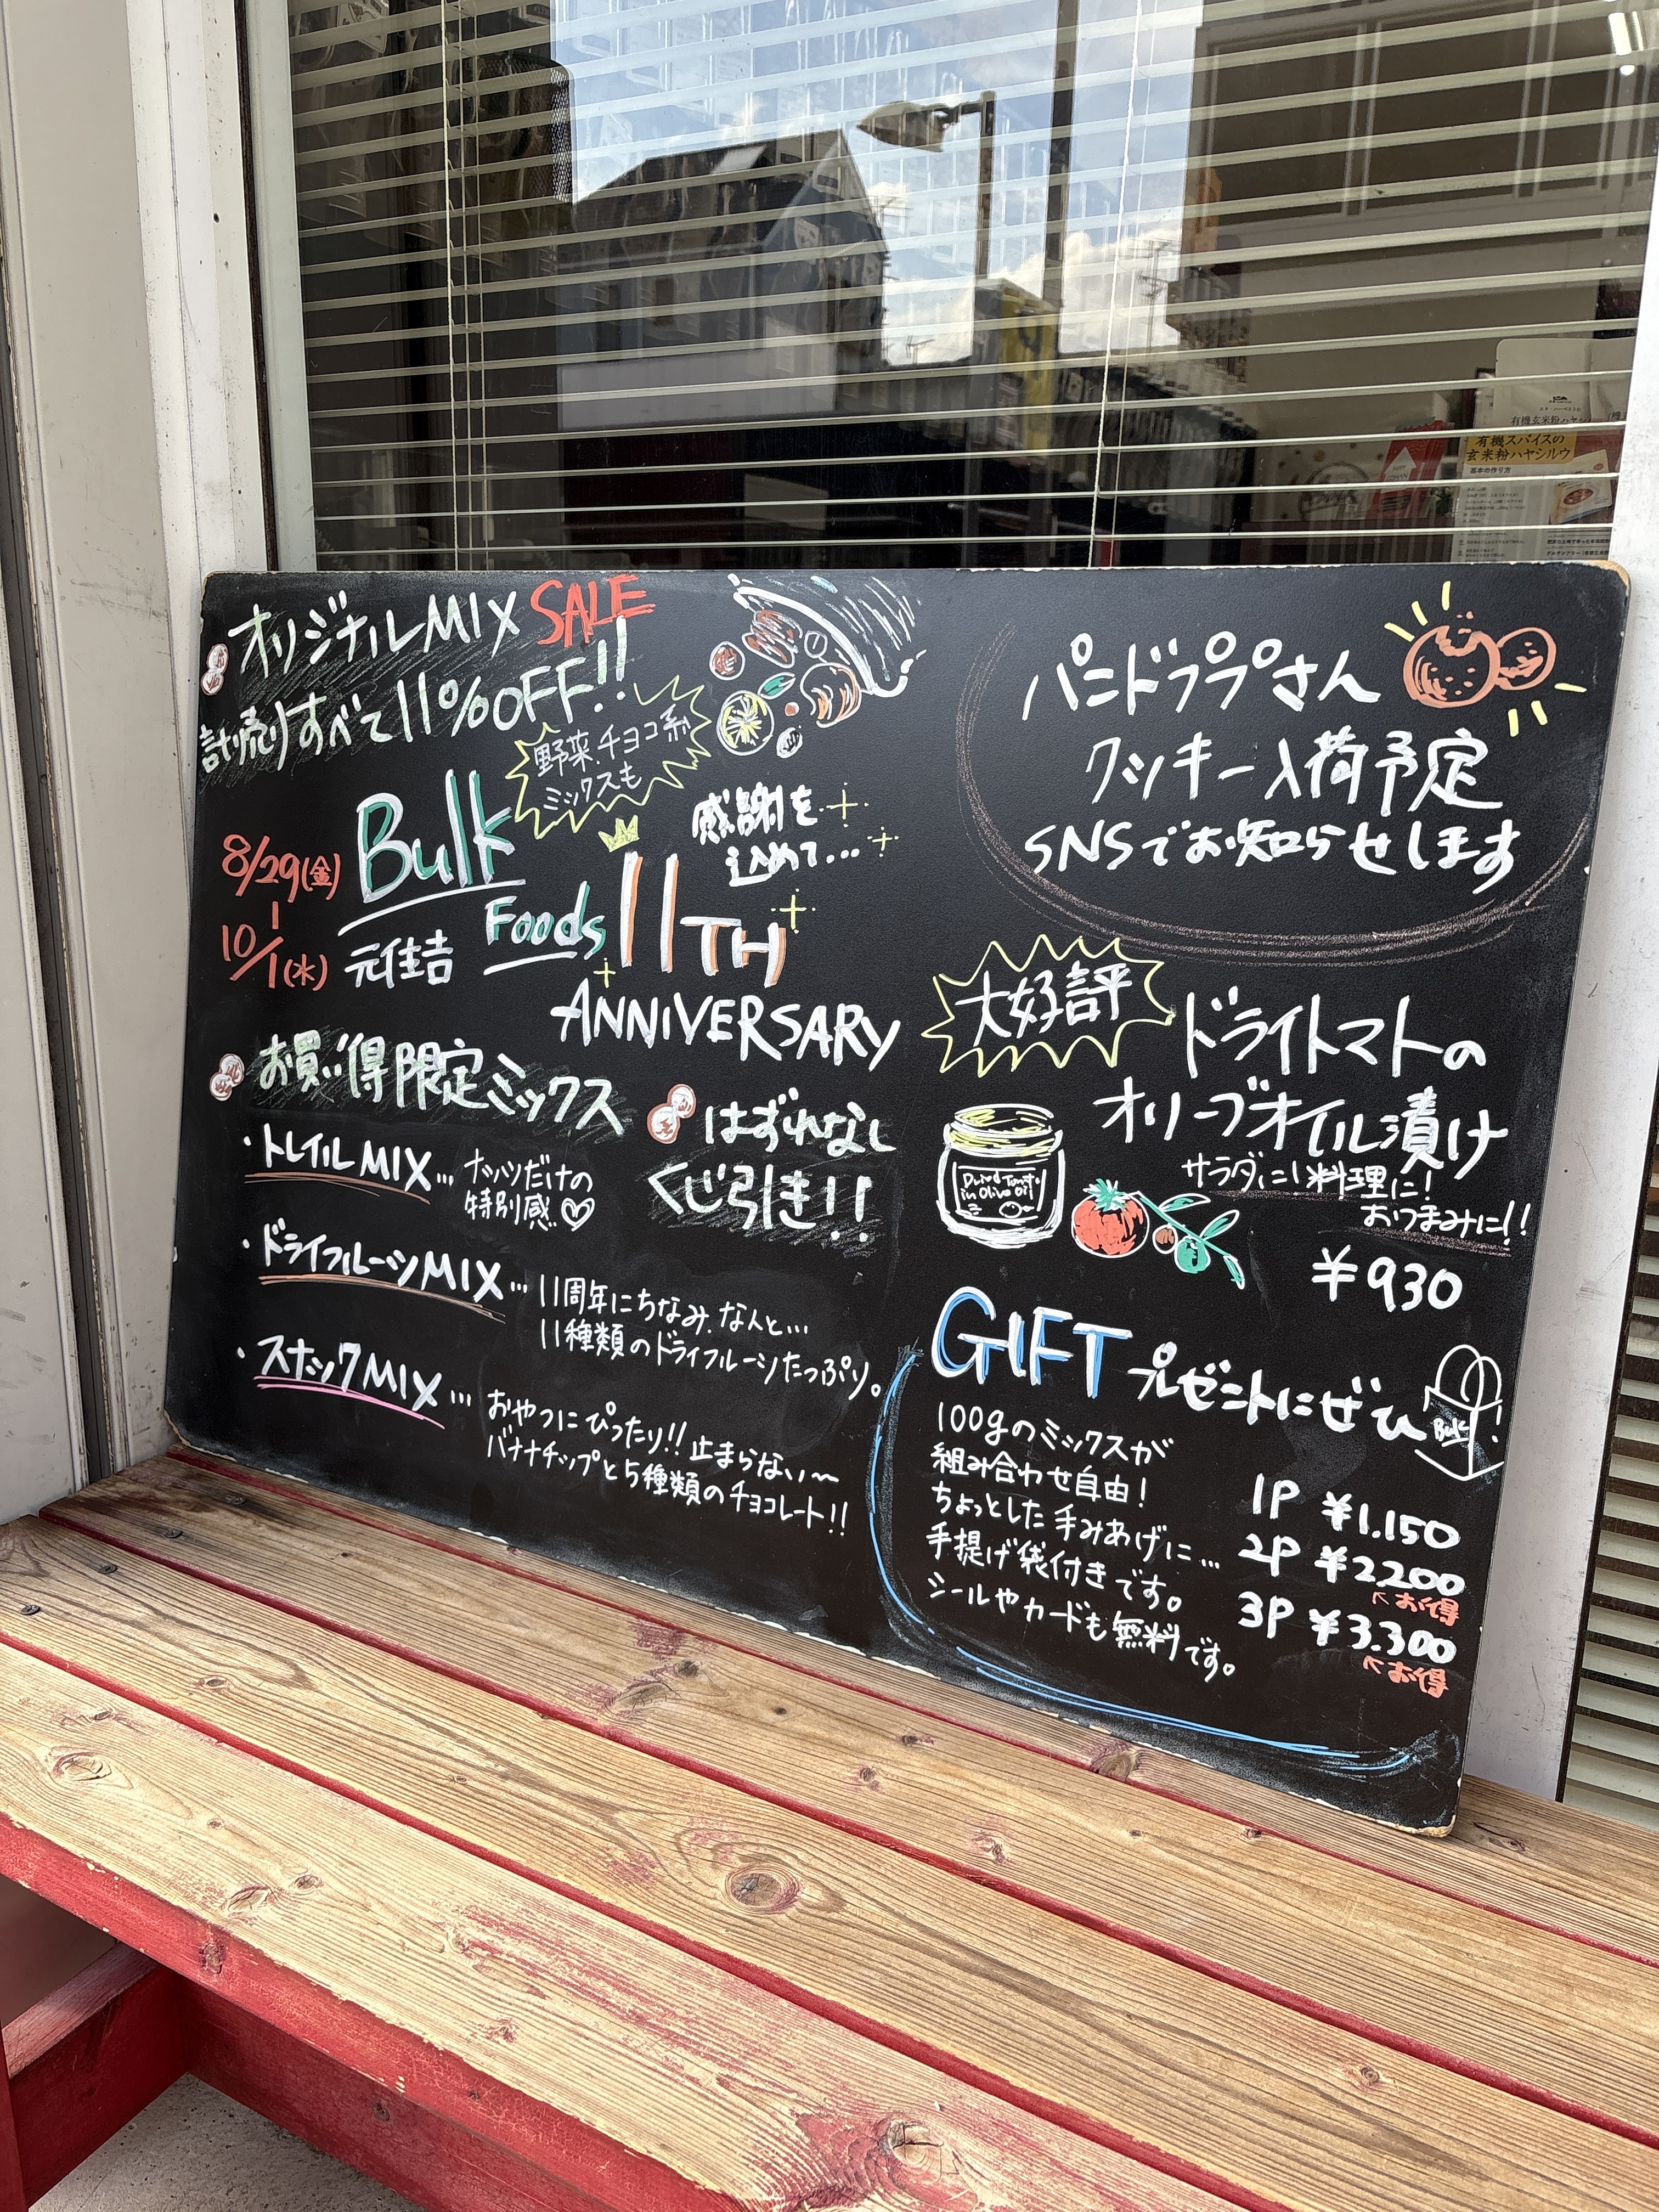 オリジナルMIX SALE
計り売りすべて11%OFF!!
野菜.チョコ系
ミックスも
8/29(金)
10/1(水)
Bulk
Foods
元住吉
感謝を
込めて...
11TH
ANNIVERSARY
お買い得限定ミックス
・トレイルMIX... ナッツだけの
特別感♡
・ドライフルーツMIX... 11周年にちなみ.なんと...
11種類のドライフルーツたっぷり。
・スナックMIX... おやつにぴったり!!止まらない〜
バナナチップと5種類のチョコレート!!
はずれなし
くじ引き!!
パンドラララさん
クッキー入荷予定
SNSでお知らせします
大好評
ドライトマトの
オリーブオイル漬け
サラダに!料理に!
おつまみに!!
¥930
in Olive Oil
GIFT プレゼントにぜひ
Bulk
100gのミックスが
組み合わせ自由!
ちょっとした手みあげに...
手提げ袋付きです。
シールやカードも無料です。
1P ¥1.150
2P ¥2.200
お得
3P ¥3.300
お得
有機スパイスの
玄米粉ハヤシルウ
基本の作り方